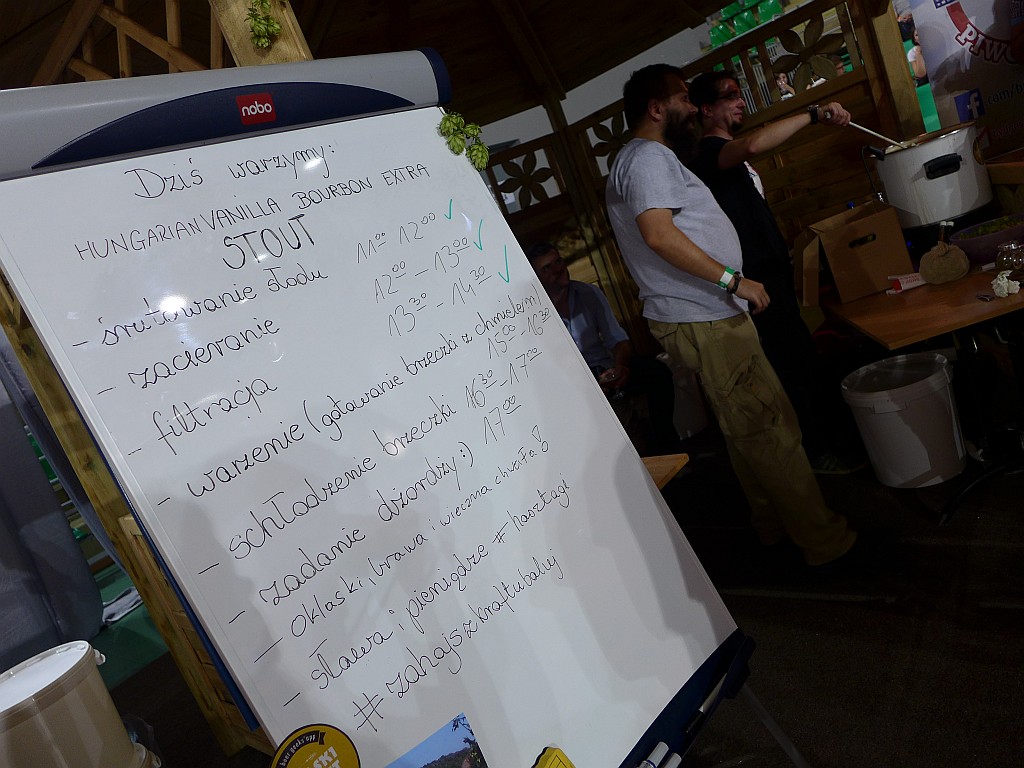 nobo
Dziś warzymy:
HUNGARIAN VANILLA BOURBON EXTRA
STOUT
- śrutowanie słodu 11⁰⁰ 12⁰⁰ ✓
- zacieranie 12⁰⁰ - 13⁰⁰ ✓
- filtracja 13³⁰ - 14³⁰ ✓
- warzenie (gotowanie brzeczki z chmielem) 15⁰⁰ - 16³⁰
- schłodzenie brzeczki 16³⁰ - 17⁰⁰
- zadanie dżordży :) 17⁰⁰
- oklaski, brawa i wieczna chwała!
- sława i pieniądze # hasztagi
# zahajszkraftubaluj